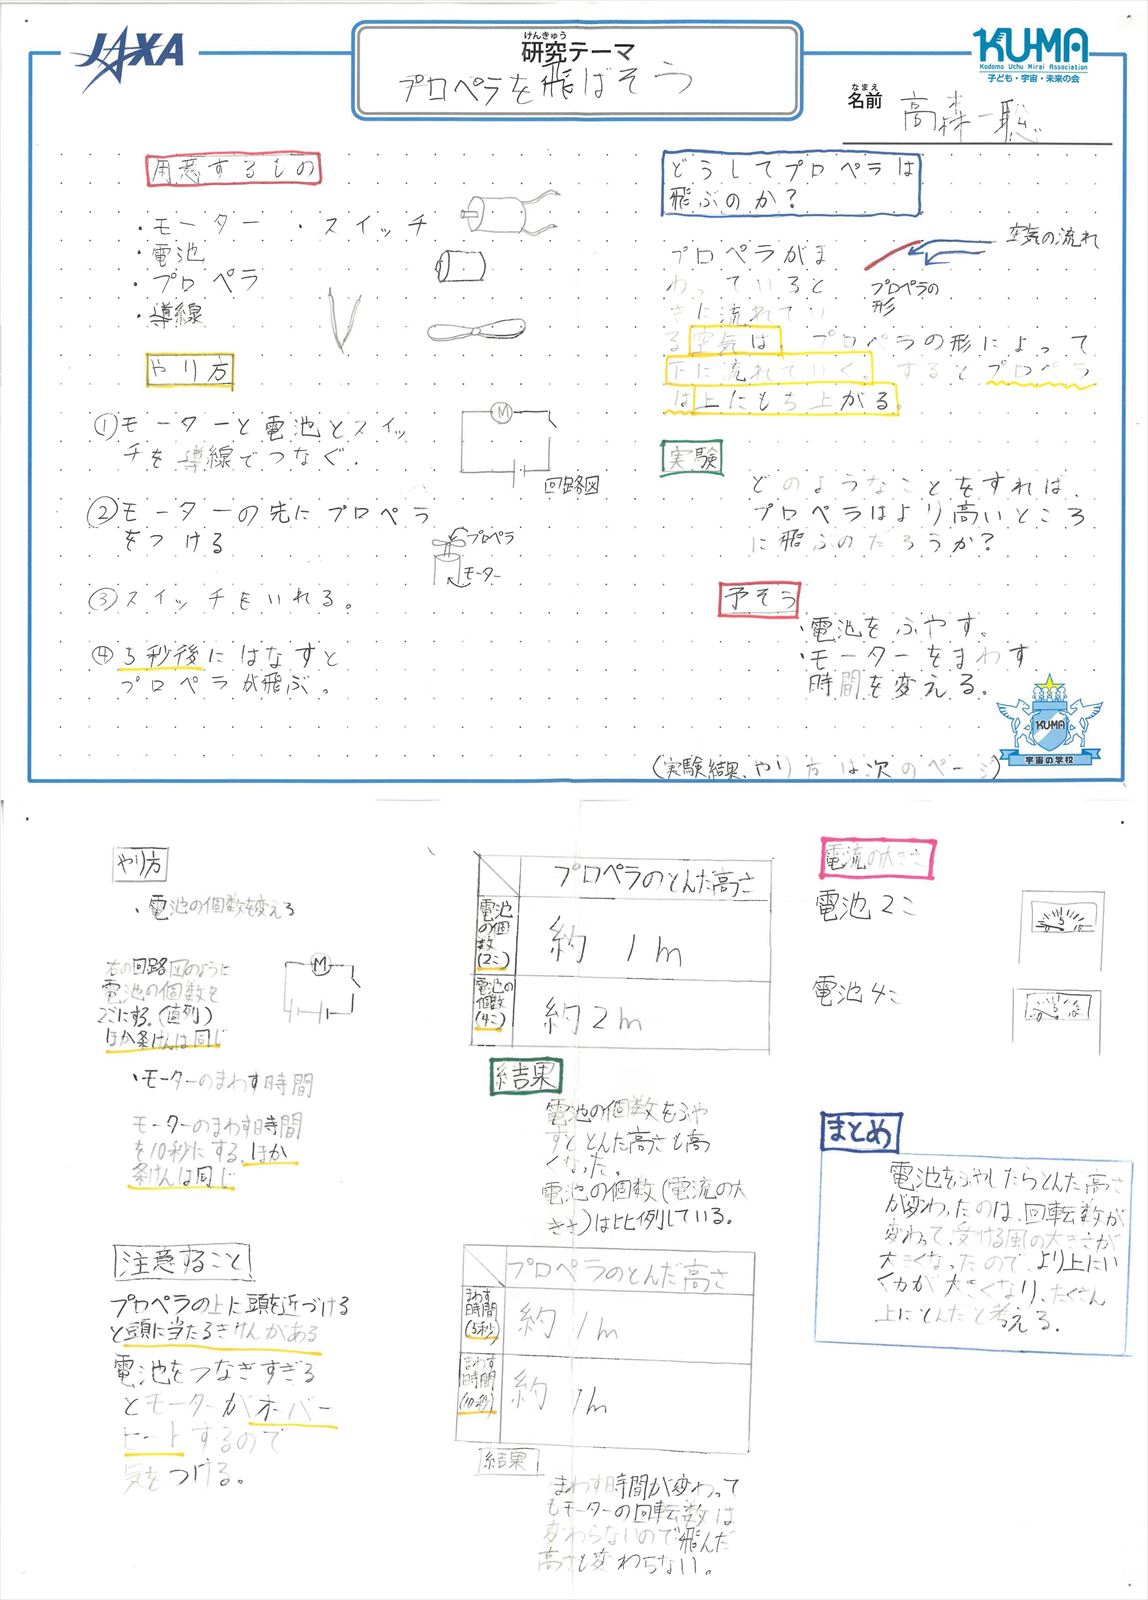 JAXA
けんきゅう
研究テーマ
プロペラを飛ばそう
KU-MA
Kodomo Uchu Mirai Association
子ども・宇宙・未来の会
なまえ
名前
高森一聡
用意するもの
・モーター ・スイッチ
・電池
・プロペラ
・導線
やり方
①モーターと電池とスイッ
チを導線でつなぐ.
回路図
②モーターの先にプロペラ
をつける
プロペラ
モーター
③スイッチをいれる。
④5秒後にはなすと
プロペラが飛ぶ。
どうしてプロペラは
飛ぶのか?
プロペラがま
わっていると
きに流れてい
る空気は、プロペラの形によって
下に流れていく。するとプロペラ
は上にもち上がる。
空気の流れ
プロペラの
形
実験
どのようなことをすれば、
プロペラはより高いところ
に飛ぶのだろうか?
予そう
・電池をふやす。
・モーターをまわす
時間を変える。
KU-MA
宇宙の学校
(実験結果、やり方は次のページ)
やり方
・電池の個数を変える
右の回路図のように
電池の個数を
2こにする。(直列)
ほか条けんは同じ
M
・モーターのまわす時間
モーターのまわす時間
を10秒にする。ほか
条けんは同じ
注意すること
プロペラの上に頭を近づける
と頭に当たるきけんがある
電池をつなぎすぎる
とモーターがオーバー
ヒートするので
気をつける。
プロペラのとんだ高さ
電池
の個
数
(2こ)
約 1m
電池の
個数
(4こ)
約2m
結果
電池の個数をふや
すととんだ高さも高
くなった。
電池の個数(電流の大
きさ)は比例している。
プロペラのとんだ高さ
まわす
時間
(5秒)
約 1m
まわす
時間
(10秒)
約 1m
結果
まわす時間が変わって
もモーターの回転数は
変わらないので飛んだ
高さも変わらない。
電流の大きさ
電池2こ
5
電池4こ
5
まとめ
電池をふやしたらとんだ高さ
が変わったのは、回転数が
変わって、受ける風の大きさが
大きくなったので、より上にい
く力が大きくなり、たくさん
上にとんだと考える.